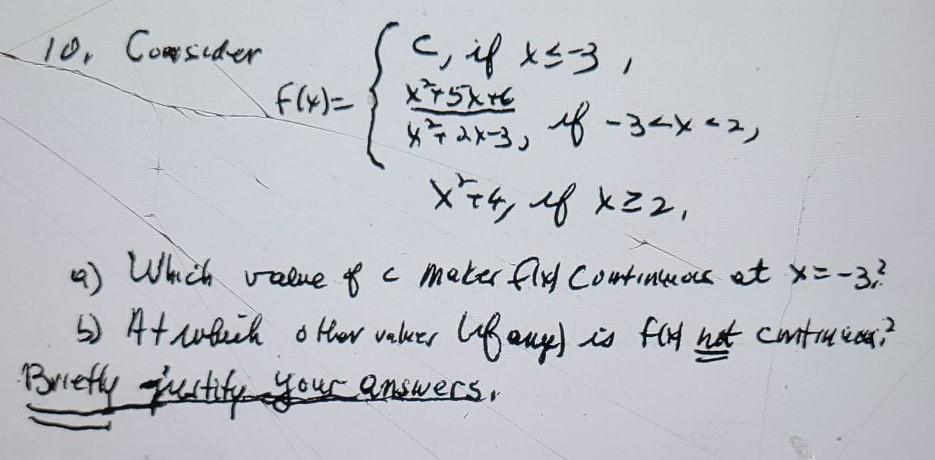 10. Consider
f(x)= { c, if x≤-3,
x²+5x+6
x²+2x-3, if -3<x<2,
x²+4, if x≥2.
a) Which value of c makes f(x) continuous at x=-3?
b) At which other values (if any) is f(x) not continuous?
Briefly justify your answers.